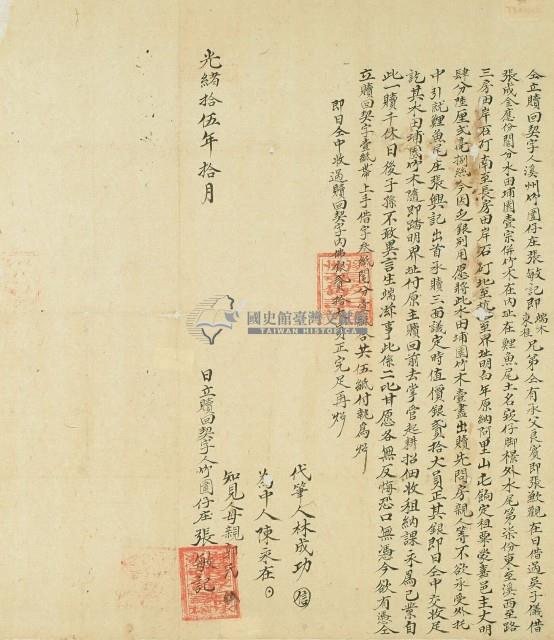 仝立贖回契字人溪州竹圍仔庄張敏記即端木兄弟仝有承父良賓即張歡觀在日借過吳子儀借
張成金應份鬮分水田埔園壹宗併竹木在內址在鯉魚尾土名崁仔脚欉外水尾第柒份東至溪西至路
三房田岸石釘南至長房田岸石釘北至坑至界址明白年原納阿里山屯餉定租粟
肆分陸厘弍毫捌絲今因乏銀別用愿將此水田埔園竹木壹盡出贖先問房親人等不欲承受外托
中引就鯉魚尾庄張興記出首承贖三面議定時值價銀貳拾大員正其銀即日仝中交收足
訖其水田埔園竹木隨即踏明界址付原主贖回前去掌管起耕招佃收租納課永為己業自
此一贖千休日後子孫不敢異言生端滋事此係二比甘愿各無反悔恐口無憑今欲有憑仝
立贖回契字壹紙帶上手借字叁紙鬮分字合共伍紙付執為炤
即日仝中收過贖回契字內佛銀貳拾員正完足再炤
代筆人林成功
為中人陳永在
知見人母親
光緒拾伍年拾月 日立贖回契字人竹圍仔庄張敏記
國史館臺灣文獻館
TAIWAN HISTORICA